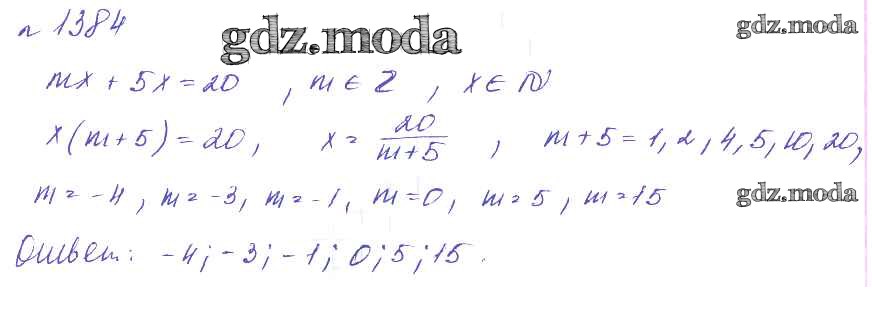 № 1384
gdz.moda
gdz.moda
mx + 5x = 20 , m ∈ Z , x ∈ N
x(m+5) = 20, x = 20/(m+5) , m+5 = 1, 2, 4, 5, 10, 20,
m = -4, m = -3, m = -1, m = 0, m = 5, m = 15
gdz.moda
Ответ: -4; -3; -1; 0; 5; 15.